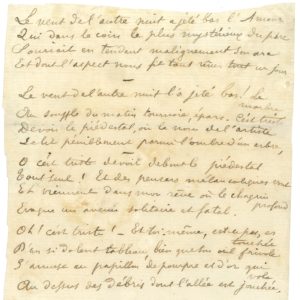 Le vent de l'autre nuit a jeté bas l'Amour
Qui dans le coin le plus mystérieux du parc
Souriait en tendant malignement son arc
Et dont l'aspect nous fit tant rêver tout un jour
Le vent de l'autre nuit l'a jeté bas! Le
marbre
Au souffle du matin tournoie, épars. C'est triste
De voir le piédestal, où le nom de l'artiste
Se lit péniblement parmi l'ombre d'un arbre,
O c'est triste de voir debout le piédestal
Tout seul! Et des pensers mélancoliques vont
Et viennent dans mon rêve où le chagrin
profond
Evoque un avenir solitaire et fatal.
Oh! c'est triste! - Et toi-même, est-ce pas, es
touchée
D'un si dolent tableau, bien que ton œil frivole
S'amuse au papillon de pourpre et d'or qui
vole
Au dessus des débris dont l'allée est jonchée.